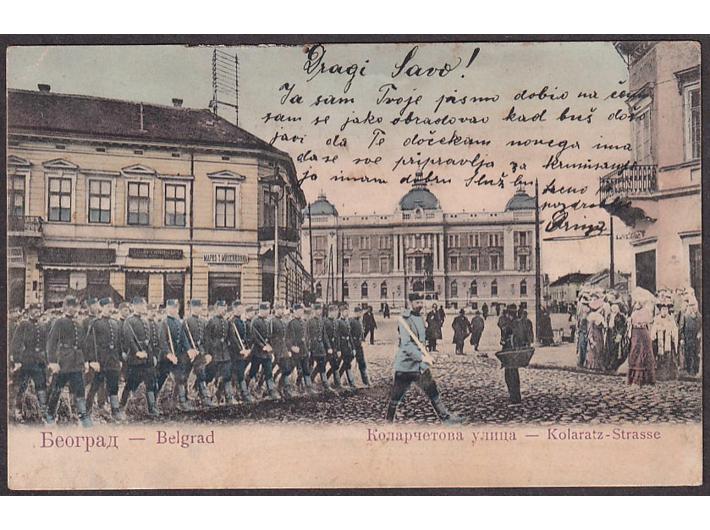 Dragi Savo!
Ja sam Tvoje pismo dobio na
sam se jako obradovao kad buš došo
javi da Te dočekam novega ima
da se sve pripravlja za
ja imam dobru Službu
Београд — Belgrad
Коларчетова улица — Kolaratz-Strasse